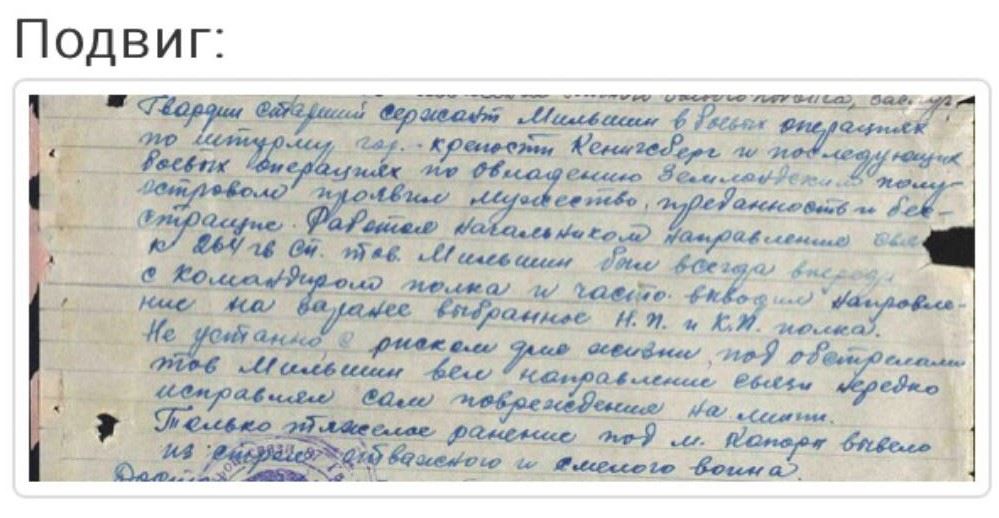 Подвиг:
боевого подвига, заслуг
Гвардии старший сержант Мильшин в боевых операциях
по штурму гор. - крепости Кенигсберг и последующих
боевых операциях по овладению Земландским полу-
островом проявил мужество, преданность и бес-
страшие. Работая начальником направления свя
к 264 гв сп. тов. Мильшин был всегда впереди
с командиром полка и часто вводил направле-
ние на заранее выбранное Н.П. и К.П. полка.
Не устанно с риском для жизни, под обстрелами
тов Мильшин вел направление связи нередко
исправлял сам повреждения на линии.
Только тяжелое ранение под м. Капорн вывело
из строя отважного и смелого воина.